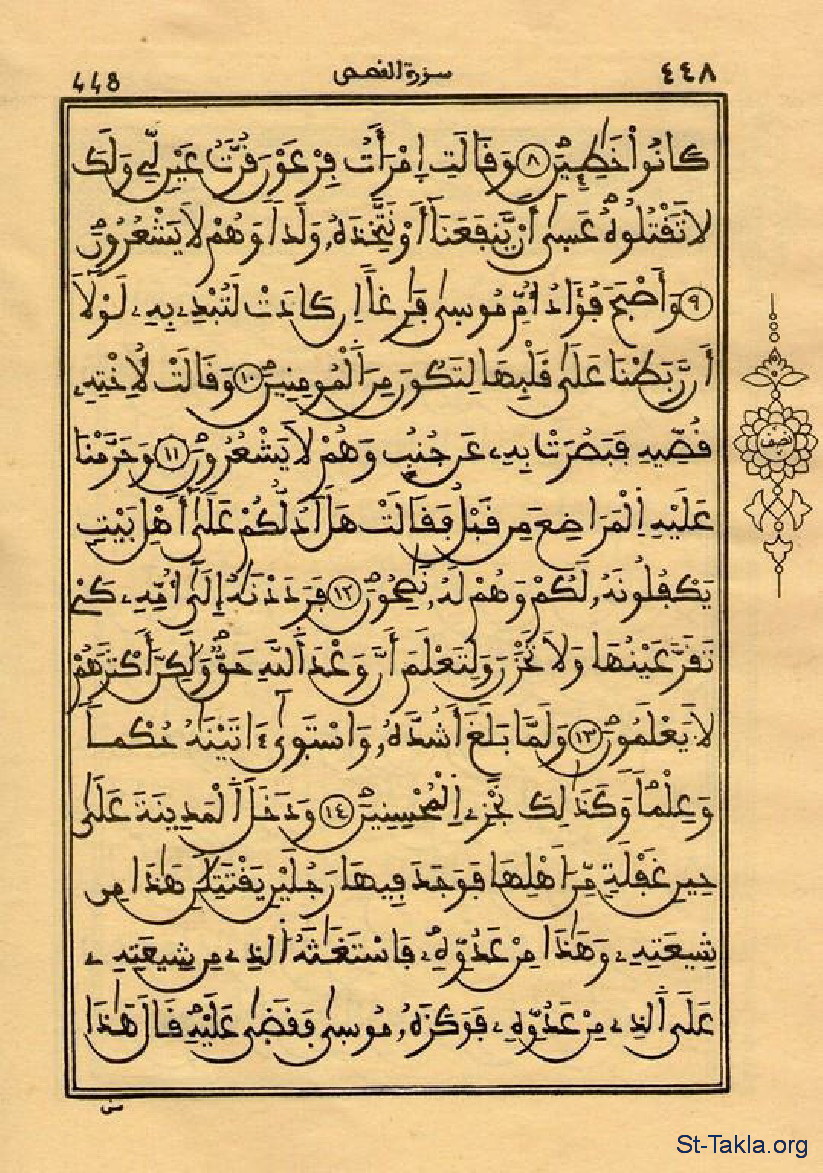 ٤٤٨ سورة القصص 448
كَانُواْ خَٰطِـِٕينَ ٨ وَقَالَتِ اِمْرَأَتُ فِرْعَوْنَ قُرَّتُ عَيْنٍ لِّے وَلَكَ
لَا تَقْتُلُوهُ عَسَىٰ أَنْ يَّنفَعَنَا أَوْ نَتَّخِذَهُۥ وَلَداً وَهُمْ لَا يَشْعُرُونَ
٩ وَأَصْبَحَ فُؤَادُ أُمِّ مُوسَىٰ فَٰرِغاً اِن كَادَتْ لَتُبْدِے بِهِۦ لَوْلَا
أَن رَّبَطْنَا عَلَىٰ قَلْبِهَا لِتَكُونَ مِنَ اَلْمُومِنِينَ ١٠ وَقَالَتْ لُأخْتِهِۦ
قُصِّيهِ فَبَصُرَتْ بِهِۦ عَن جُنُبٍ وَهُمْ لَا يَشْعُرُونَ ١١ وَحَرَّمْنَا
عَلَيْهِ اِلْمَرَاضِعَ مِن قَبْلُ فَقَالَتْ هَلَ اَدُلُّكُمْ عَلَىٰ أَهْلِ بَيْتٍ
يَكْفُلُونَهُۥ لَكُمْ وَهُمْ لَهُۥ نَٰصِحُونَ ١٢ فَرَدَدْنَٰهُ إِلَىٰ أُمِّهِۦ كَےْ
تَقَرَّ عَيْنُهَا وَلَا تَحْزَنَ وَلِتَعْلَمَ أَنَّ وَعْدَ اَللَّهِ حَقٌّ وَلَٰكِنَّ أَكْثَرَهُمْ
لَا يَعْلَمُونَ ١٣ وَلَمَّا بَلَغَ أَشُدَّهُۥ وَاسْتَوَىٰ ءَاتَيْنَٰهُ حُكْماً
وَعِلْماً وَكَذَٰلِكَ نَجْزِے اِلْمُحْسِنِينَ ١٤ وَدَخَلَ اَلْمَدِينَةَ عَلَىٰ
حِينِ غَفْلَةٍ مِّنَ اَهْلِهَا فَوَجَدَ فِيهَا رَجُلَيْنِ يَقْتَتِلَٰنِ هَٰذَا مِن
شِيعَتِهِۦ وَهَٰذَا مِنْ عَدُوِّهِۦ فَاسْتَغَٰثَهُ اَلذِے مِن شِيعَتِهِۦ
عَلَى اَلذِے مِنْ عَدُوِّهِۦ فَوَكَزَهُۥ مُوسَىٰ فَقَضَىٰ عَلَيْهِ قَالَ هَٰذَا
من
نصف
St-Takla.org